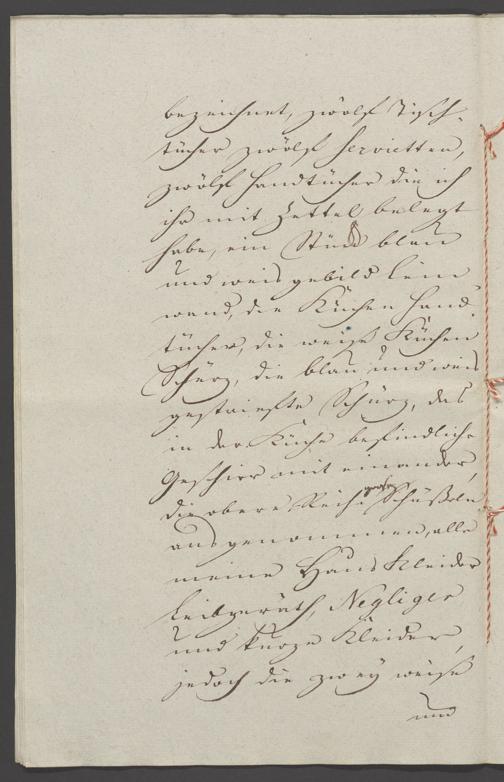 bezeichnet, zwölf Tisch-
tücher zwölf Servietten,
zwölf Handtücher die ich
ihr mit Zettel belegt
habe, ein Stück blau
und weis gebild Lein
wand, die Küchen Hand
tücher, die weise Küchen
Schürz, die blau und weis
gestreifte Schürz, das
in der Küche befindliche
Geschirr mit einander,
die obere Reihe große Schüßeln
ausgenommen, alle
meine Haus Kleider
Leibgeräth, Negliger
und kurze Kleider,
jedoch die zwey weise
und